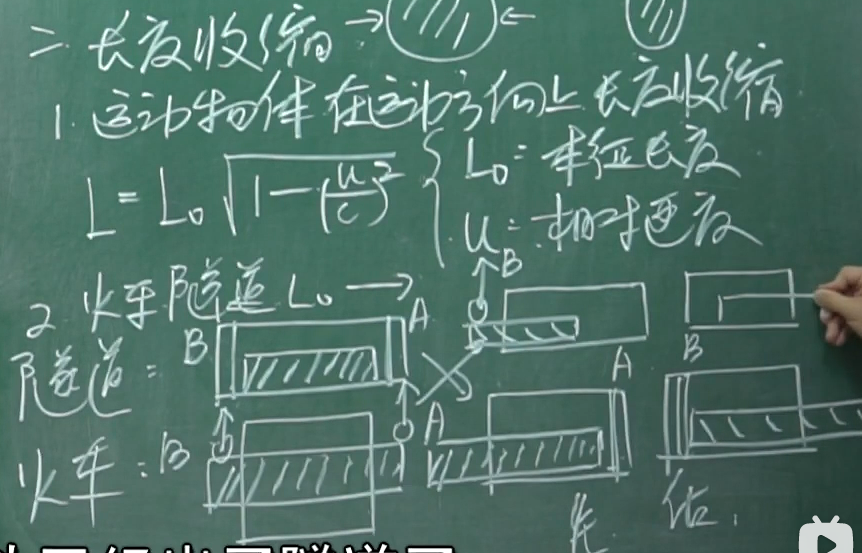 二. 长度收缩
1. 运动物体在运动方向上长度收缩
L = L₀ √(1-(u/c)²) { L₀: 本征长度
u: 相对速度
2 火车隧道 L₀ →
B A B
隧道: B A
火车: B A
先 后.